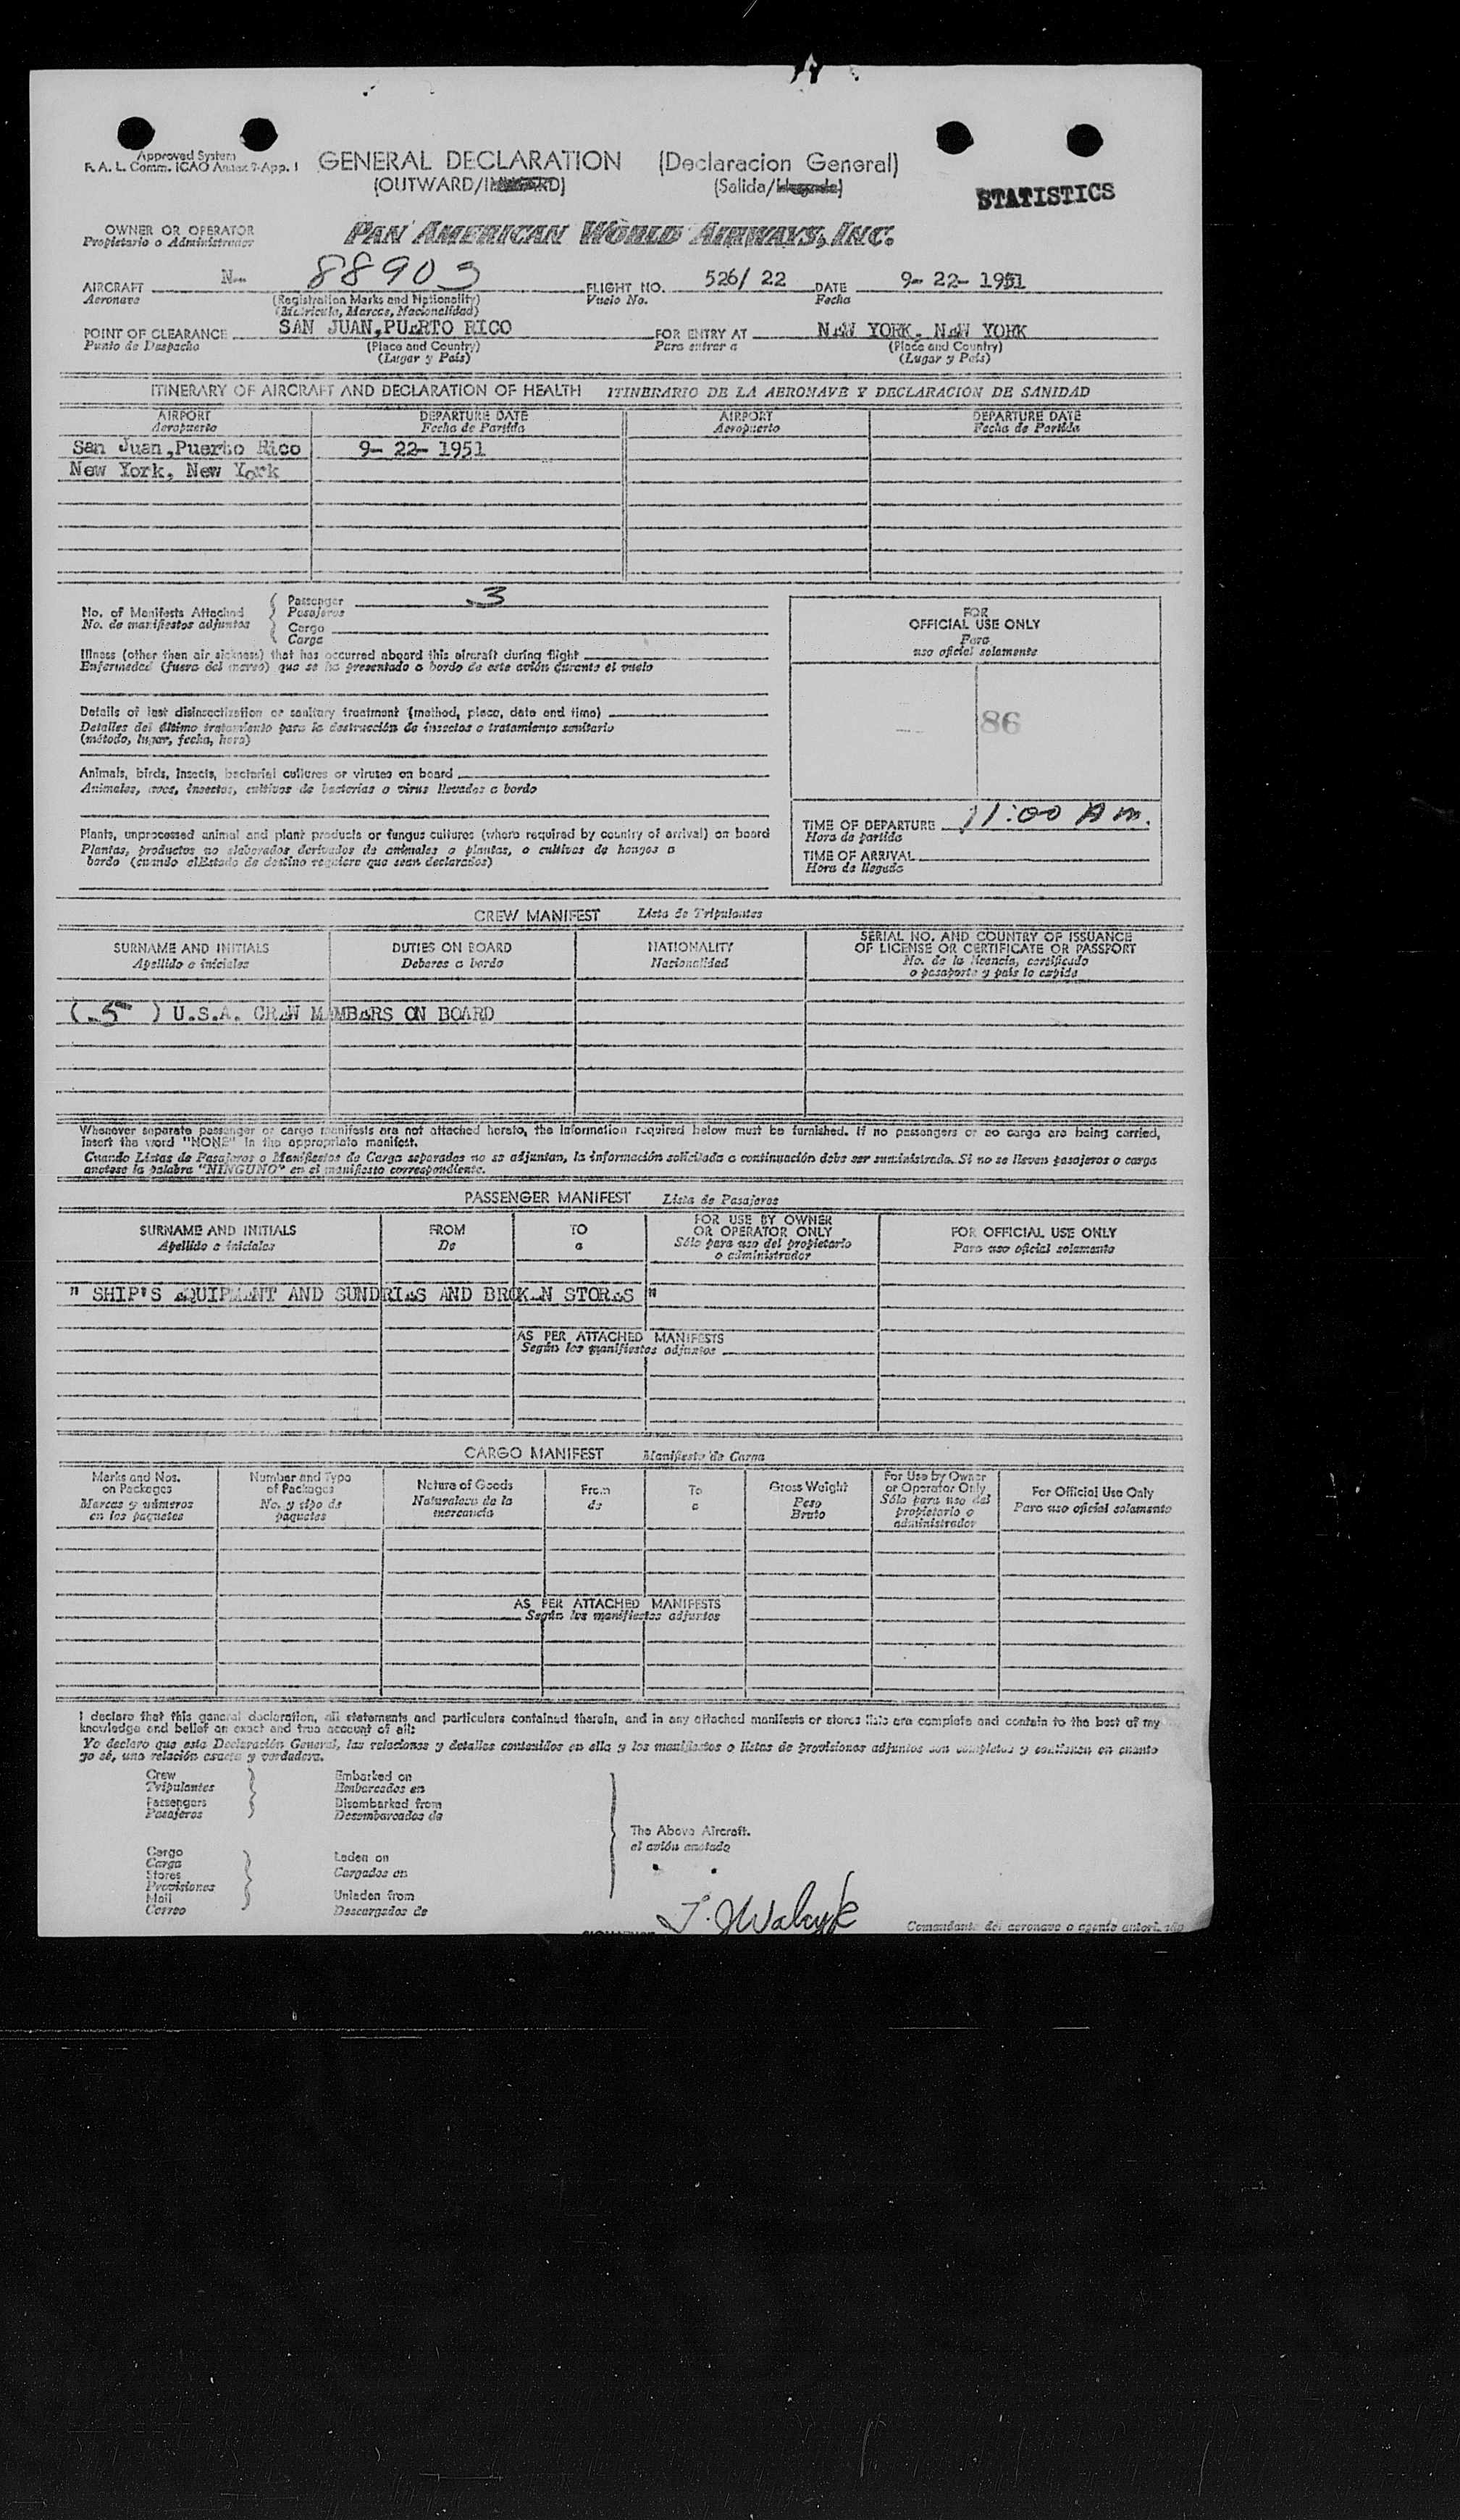 Approved System
F. A. L. Comm. ICAO Annex 9-App. I
GENERAL DECLARATION (Declaracion General)
(OUTWARD/INWARD) (Salida/Llegada)
STATISTICS
OWNER OR OPERATOR
Propietario o Administrador
PAN AMERICAN WORLD AIRWAYS, INC.
AIRCRAFT N- 88903 FLIGHT NO. 526/ 22 DATE 9- 22- 1951
Aeronave (Registration Marks and Nationality) Vuelo No. Fecha
(Matricula, Marcas, Nacionalidad)
POINT OF CLEARANCE SAN JUAN,PUERTO RICO FOR ENTRY AT NEW YORK, NEW YORK
Punto de Despacho (Place and Country) Para entrar a (Place and Country)
(Lugar y País) (Lugar y País)
ITINERARY OF AIRCRAFT AND DECLARATION OF HEALTH ITINERARIO DE LA AERONAVE Y DECLARACION DE SANIDAD
AIRPORT DEPARTURE DATE AIRPORT DEPARTURE DATE
Aeropuerto Fecha de Partida Aeropuerto Fecha de Partida
San Juan,Puerto Rico 9- 22- 1951
New York, New York
No. of Manifests Attached
No. de manifiestos adjuntos
Passenger 3
Pasajeros
Cargo
Carga
Illness (other than air sickness) that has occurred aboard this aircraft during flight
Enfermedad (fuera del mareo) que se ha presentado a bordo de este avión durante el vuelo
Details of last disinsectization or sanitary treatment (method, place, date and time)
Detalles del último tratamiento para la destrucción de insectos o tratamiento sanitario
(método, lugar, fecha, hora)
Animals, birds, insects, bacterial cultures or viruses on board
Animales, aves, insectos, cultivos de bacterias o virus llevados a bordo
Plants, unprocessed animal and plant products or fungus cultures (where required by country of arrival) on board
Plantas, productos no elaborados derivados de animales o plantas, o cultivos de hongos a
bordo (cuando elEstado de destino requiere que sean declarados)
FOR
OFFICIAL USE ONLY
Para
uso oficial solamente
86
TIME OF DEPARTURE 11:00 A m.
Hora de partida
TIME OF ARRIVAL
Hora de llegada
CREW MANIFEST Lista de Tripulantes
SURNAME AND INITIALS DUTIES ON BOARD NATIONALITY SERIAL NO. AND COUNTRY OF ISSUANCE
OF LICENSE OR CERTIFICATE OR PASSPORT
Apellido e iniciales Deberes a bordo Nacionalidad No. de la licencia, certificado
o pasaporte y país lo expide
( 5 ) U.S.A. CREW MEMBERS ON BOARD
Whenever separate passenger or cargo manifests are not attached hereto, the information required below must be furnished. If no passengers or no cargo are being carried,
insert the word "NONE" in the appropriate manifest.
Cuando Listas de Pasajeros o Manifiestos de Carga separados no se adjuntan, la información solicitada a continuación debe ser suministrada. Si no se lleven pasajeros o carga
anotese la palabra "NINGUNO" en el manifiesto correspondiente.
PASSENGER MANIFEST Lista de Pasajeros
SURNAME AND INITIALS FROM TO FOR USE BY OWNER
OR OPERATOR ONLY FOR OFFICIAL USE ONLY
Apellido e iniciales De a Sólo para uso del propietario
o administrador Para uso oficial solamente
" SHIP'S EQUIPMENT AND SUNDRIES AND BROKEN STORES "
AS PER ATTACHED MANIFESTS
Según los manifiestos adjuntos
CARGO MANIFEST Manifiesto de Carga
Marks and Nos.
on Packages
Marcas y números
en los paquetes
Number and Type
of Packages
No. y tipo de
paquetes
Nature of Goods
Naturaleza de la
mercancía
From
de
To
a
Gross Weight
Peso
Bruto
For Use by Owner
or Operator Only
Sólo para uso del
propietario o
administrador
For Official Use Only
Para uso oficial solamente
AS PER ATTACHED MANIFESTS
Según los manifiestos adjuntos
I declare that this general declaration, all statements and particulars contained therein, and in any attached manifests or stores lists are complete and contain to the best of my
knowledge and belief an exact and true account of all:
Yo declaro que esta Declaración General, las relaciones y detalles contenidos en ella y los manifiestos o listas de provisiones adjuntos son completos y contienen en cuanto
yo sé, una relación exacta y verdadera.
Crew
Tripulantes
Passengers
Pasajeros
Embarked on
Embarcados en
Disembarked from
Desembarcados de
The Above Aircraft.
el avión anotado
Cargo
Carga
Stores
Provisiones
Mail
Correo
Laden on
Cargados en
Unladen from
Descargados de
Comandante del aeronave o agente